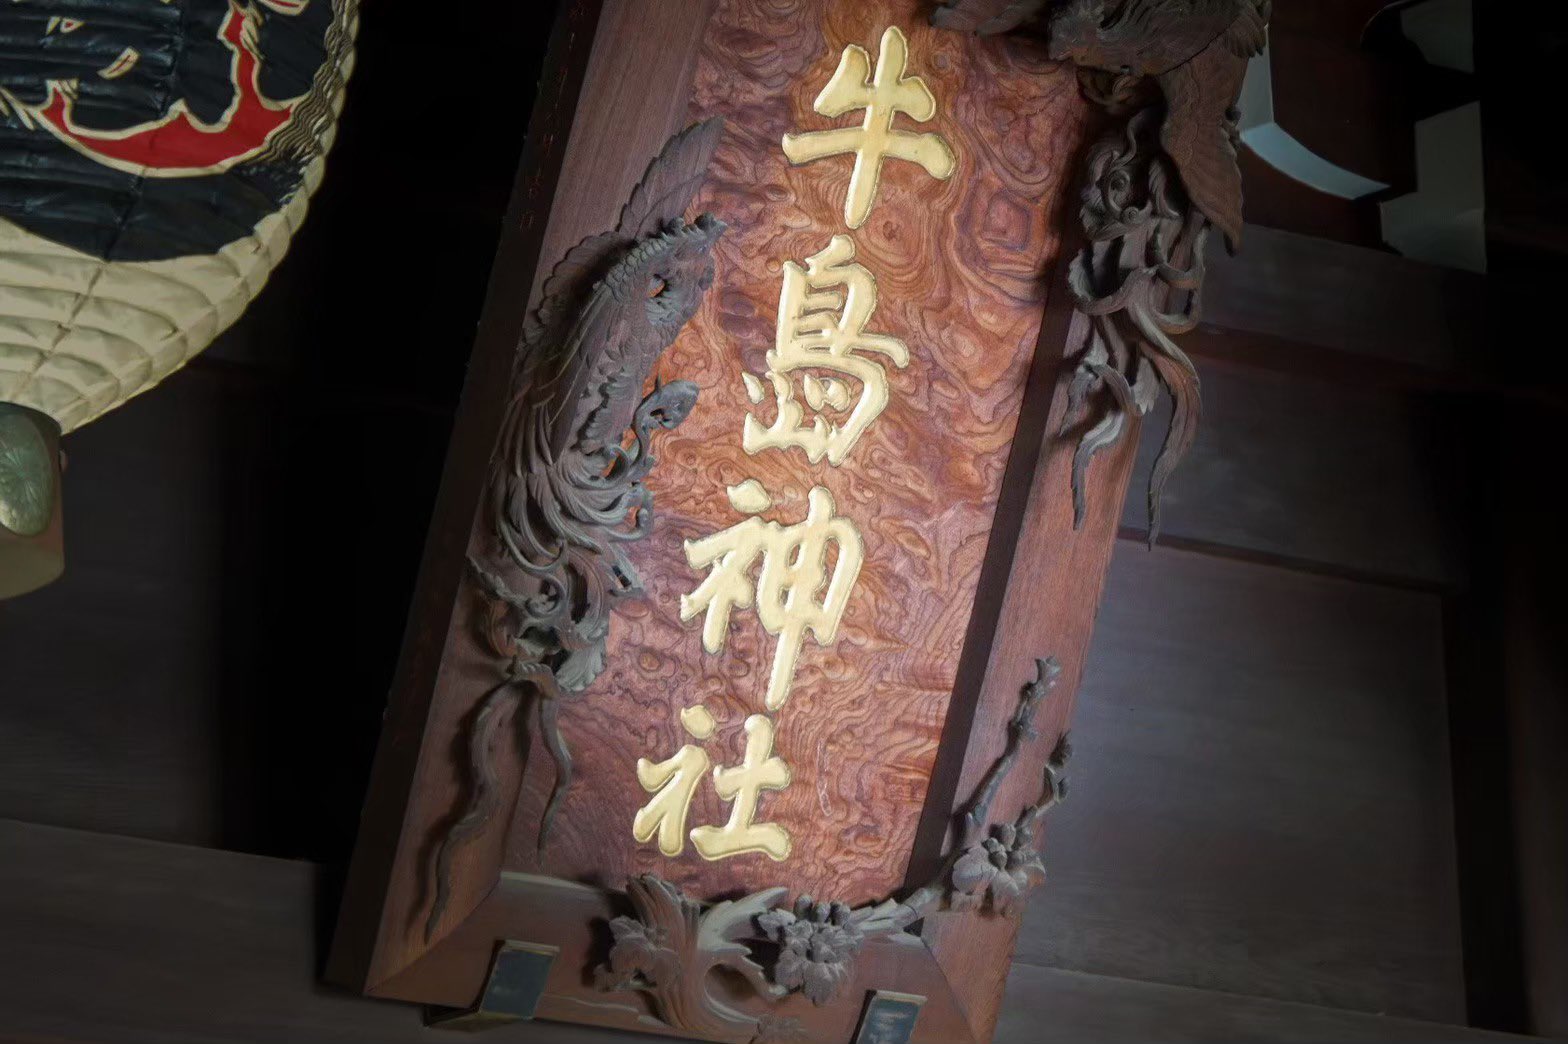 牛島神社